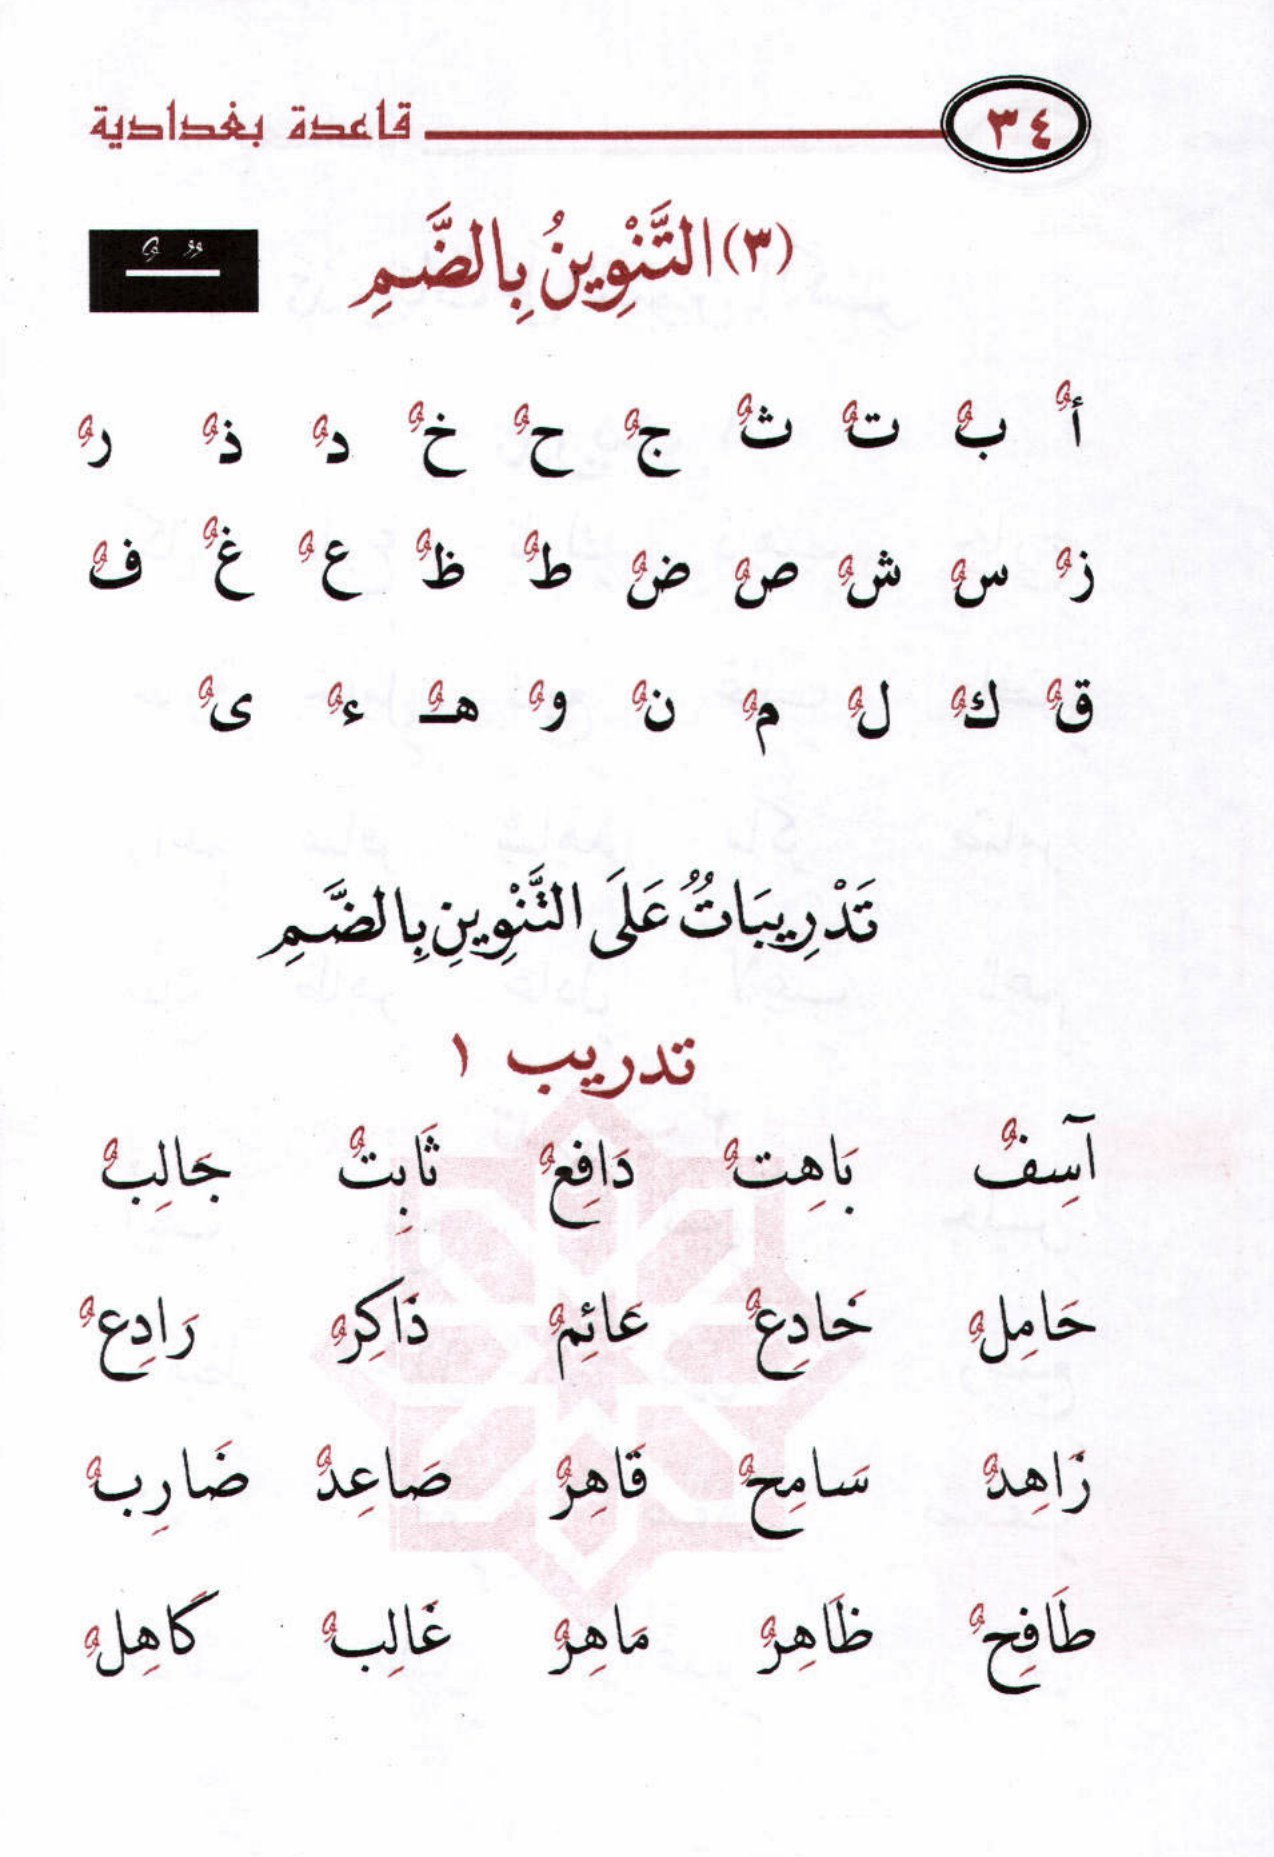 ٣٤ قاعدة بغدادية
(٣) التَّنْوِينُ بِالضَّمِ
أٌ بٌ تٌ ثٌ جٌ حٌ خٌ دٌ ذٌ رٌ
زٌ سٌ شٌ صٌ ضٌ طٌ ظٌ عٌ غٌ فٌ
قٌ كٌ لٌ مٌ نٌ وٌ هـٌ ءٌ ىٌ
تَدْرِيبَاتٌ عَلَى التَّنْوِينِ بِالضَّمِ
تدريب ١
آسِفٌ بَاهِتٌ دَافِعٌ ثَابِتٌ جَالِبٌ
حَامِلٌ خَادِعٌ عَائِمٌ ذَاكِرٌ رَادِعٌ
زَاهِدٌ سَامِحٌ قَاهِرٌ صَاعِدٌ ضَارِبٌ
طَافِحٌ ظَاهِرٌ مَاهِرٌ غَالِبٌ كَاهِلٌ